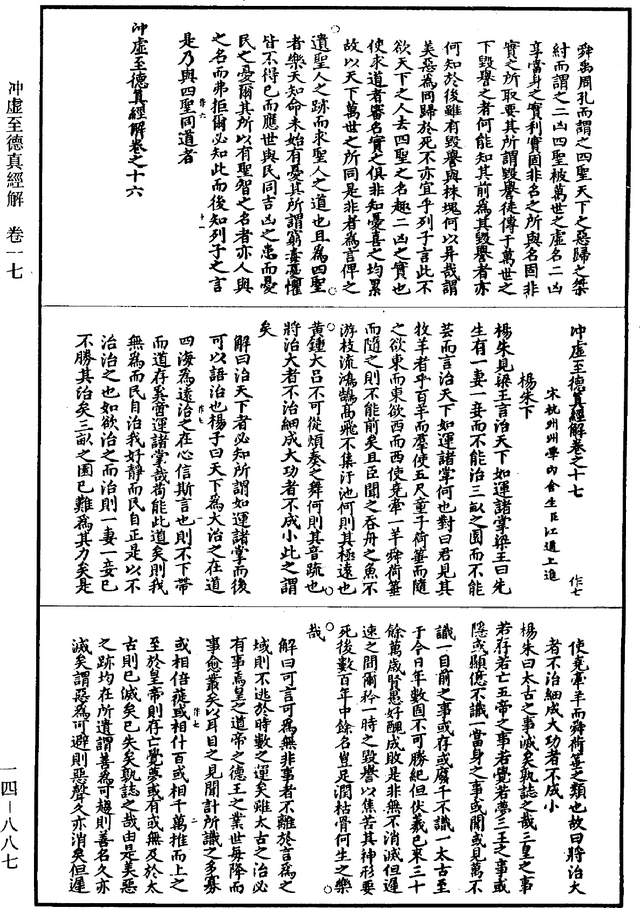 沖虛至德真經解 卷一七
一四—八八七
舜禹周孔而謂之四聖天下之惡歸之桀
紂而謂之二凶四聖被萬世之虛名二凶
享當身之實利實固非名之所與名固非
實之所取要其所謂毀譽徒傳于萬世之
下毀譽之者何能知其前為其毀譽者亦
何知於後雖有毀譽與株塊何以异哉謂
美惡為同歸於死不亦宜乎列子言此不
欲天下之人去四聖之名趣二凶之實也
使求道者審名實之俱非知憂喜之均累
故以天下萬世之所同是非者為言俾之
遺聖人之跡而求聖人之道也且為四聖
者樂天知命未始有憂其所謂窮毒憂懼
皆不得已而應世與民同吉凶之患而憂
民之憂爾其所以有聖智之名者亦人與
之名而弗拒爾必知此而後知列子之言
是乃與四聖同道者
沖虛至德真經解卷之十六
沖虛至德真經解卷之十七
作七
宋杭州州學內舍生臣江遹上進
楊朱下
楊朱見梁王言治天下如運諸掌梁王曰先
生有一妻一妾而不能治三畝之園而不能
芸而言治天下如運諸掌何也對曰君見其
牧羊者乎百羊而羣使五尺童子荷箠而隨
之欲東而東欲西而西使堯牽一羊舜荷箠
而隨之則不能前矣且臣聞之吞舟之魚不
游枝流鴻鵠高飛不集汙池何則其極遠也
黃鍾大呂不可從煩奏之舞何則其音疏也
將治大者不治細成大功者不成小此之謂
矣
解曰治天下者必知所謂如運諸掌而後
可以語治也楊子曰天下為大治之在道
四海為遠治之在心信斯言也則不下帶
而道存奚啻運諸掌哉苟能此道矣則我
無為而民自治我好靜而民自正是以不
治治之也如欲治之而治則一妻一妾已
不勝其治矣三畝之園已難為其力矣是
使堯牽羊而舜荷箠之類也故曰將治大
者不治細成大功者不成小
楊朱曰太古之事滅矣孰誌之哉三皇之事
若存若亡五帝之事若覺若夢三王之事或
隱或顯億不識一當身之事或聞或見萬不
識一目前之事或存或廢千不識一太古至
于今日年數固不可勝紀但伏羲已來三十
餘萬歲賢愚好醜成敗是非無不消滅但遲
速之間爾矜一時之毀譽以焦苦其神形要
死後數百年中餘名豈足潤枯骨何生之樂
哉
解曰可言可為無非事者不離於言為之
域則不逃於時數之運矣雖太古之治必
有事焉皇之道帝之德王之業世每降而
事愈叢矣以耳目之見聞計所識之多寡
或相倍蓰或相什百或相千萬推而上之
至於皇帝則存亡覺夢或有或無及於太
古則已滅矣已失矣孰誌之哉由是美惡
之跡均在所遺謂善為可趨則善名久亦
滅矣謂惡為可避則惡聲久亦消矣但遲